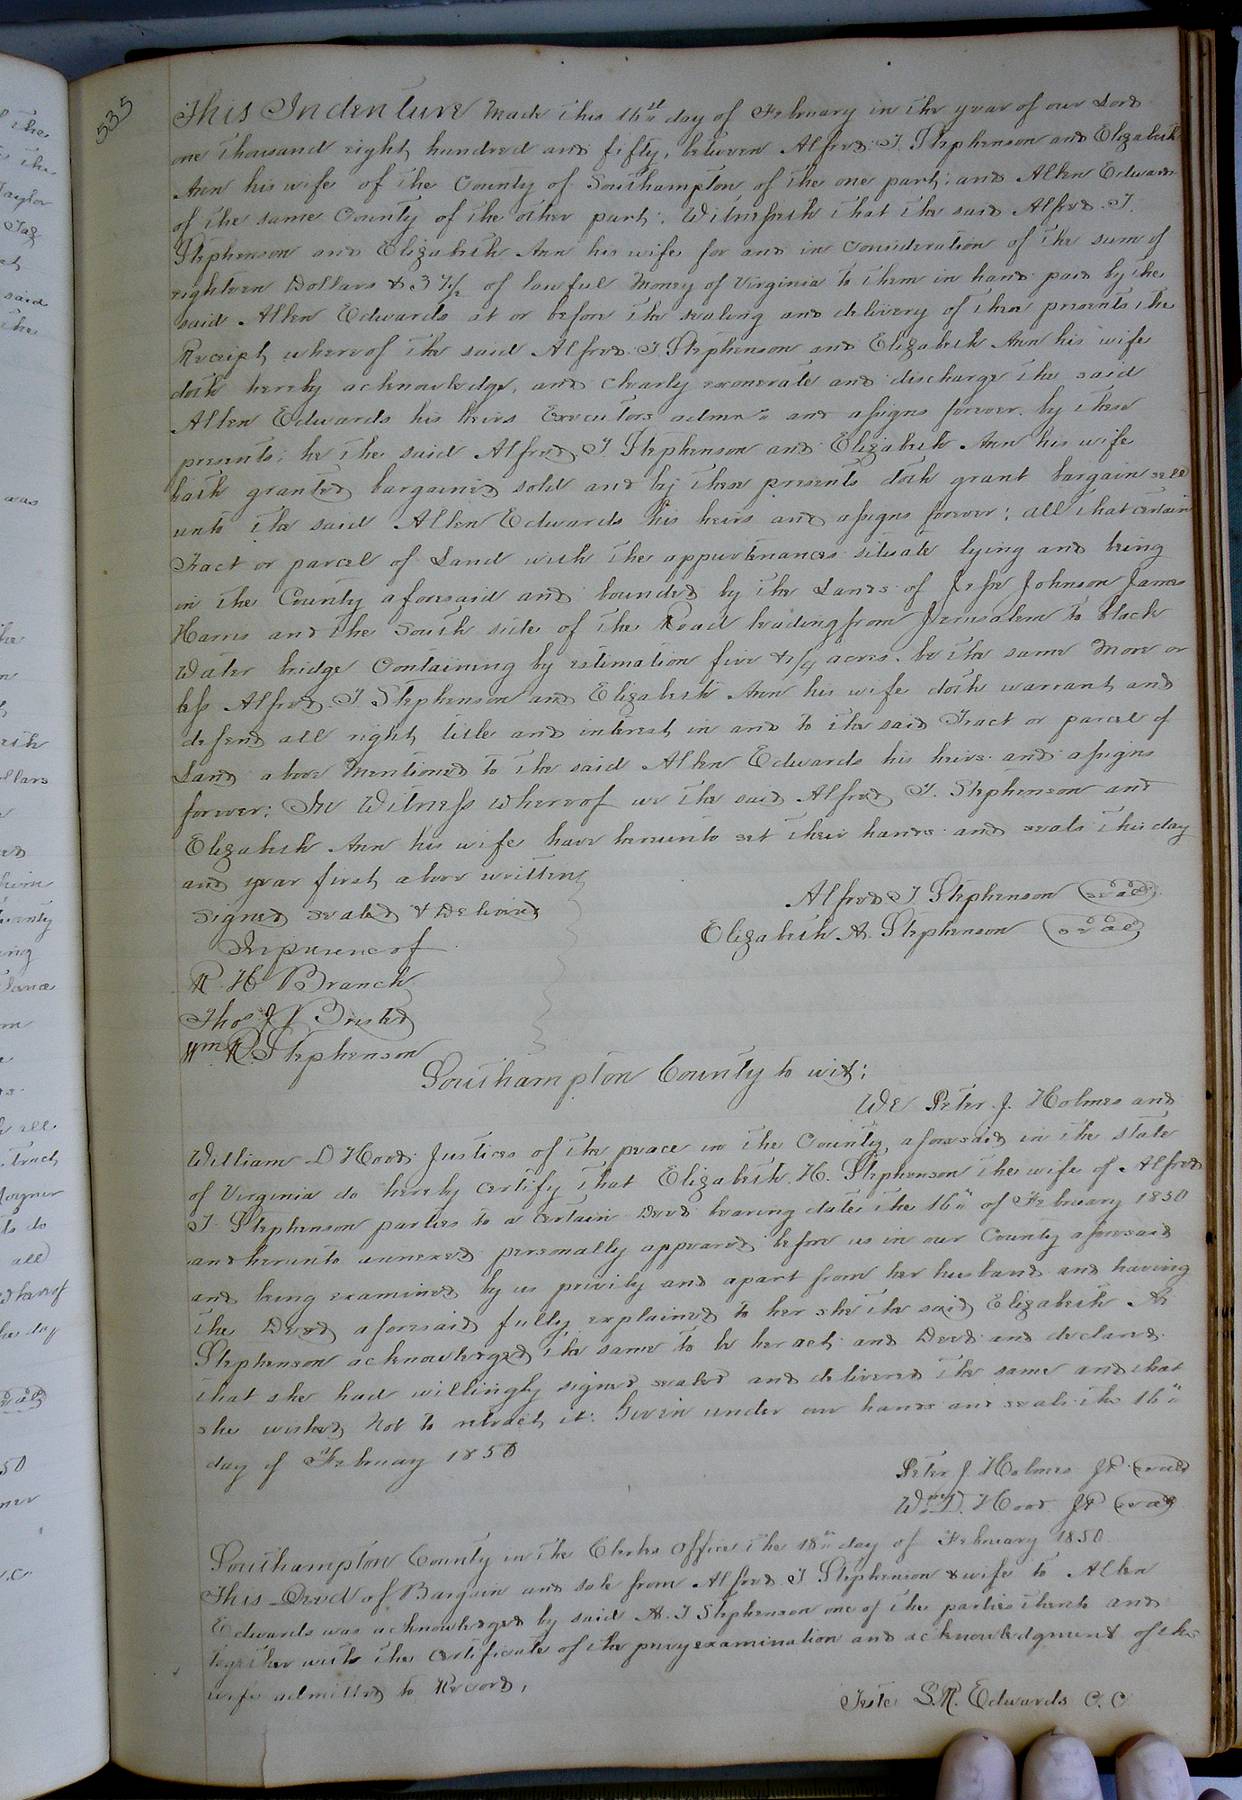 535
This Indenture Made this 16th day of February in the year of our Lord
one thousand eight hundred and fifty, between Alfred T. Stephenson and Elizabeth
Ann his wife of the County of Southampton of the one part; and Allen Edwards
of the same County of the other part; Witnesseth that the said Alfred T.
Stephenson and Elizabeth Ann his wife for and in consideration of the sum of
eighteen Dollars & 37 1/2 of lawful Money of Virginia to them in hand paid by the
said Allen Edwards at or before the sealing and delivery of these presents the
Receipt whereof the said Alfred T. Stephenson and Elizabeth Ann his wife
doth hereby acknowledge, and clearly exonerate and discharge the said
Allen Edwards his heirs Executors admrs and assigns forever by these
presents; he the said Alfred T. Stephenson and Elizabeth Ann his wife
hath granted bargained sold and by these presents doth grant bargain sell
unto the said Allen Edwards his heirs and assigns forever; all that certain
Tract or parcel of Land with the appurtenances situate lying and being
in the County aforesaid and bounded by the Lands of Jesse Johnson James
Harris and the South side of the Road leading from Jerusalem to Black
Water bridge Containing by estimation five & 1/4 acres. be the same More or
less Alfred T Stephenson and Elizabeth Ann his wife doth warrant and
defend all right title and interest in and to the said Tract or parcel of
Land above Mentioned to the said Allen Edwards his heirs and assigns
forever; In Witness whereof we the said Alfred T. Stephenson and
Elizabeth Ann his wife have hereunto set their hands and seals this day
and year first above written
Signed sealed & Delivered
In presence of
R. H. Branch
Thos J
Wm R. Stephenson
Alfred T Stephenson (seal)
Elizabeth A. Stephenson (seal)
Southampton County to wit;
We Peter J. Holmes and
William D Hood Justices of the peace in the County aforesaid in the state
of Virginia do hereby certify that Elizabeth H. Stephenson the wife of Alfred
T. Stephenson parties to a certain Deed bearing date the 16th of February 1850
and hereunto annexed personally appeared before us in our County aforesaid
and being examined by us privily and apart from her husband and having
the Deed aforesaid fully explained to her she the said Elizabeth A
Stephenson acknowledged the same to be her act and Deed and declared
that she had willingly signed sealed and delivered the same and that
she wished Not to retract it: Given under our hands and seals the 16th
day of February 1850
Peter J. Holmes JP (seal)
Wm D. Hood JP (seal)
Southampton County in the Clerks Office the 18th day of February 1850
This Deed of Bargain and sale from Alfred T Stephenson & wife to Allen
Edwards was acknowledged by said A. T Stephenson one of the parties thereto and
together with the certificate of the privy examination and acknowledgment of the
wife admitted to Record,
Teste L. R. Edwards C. C